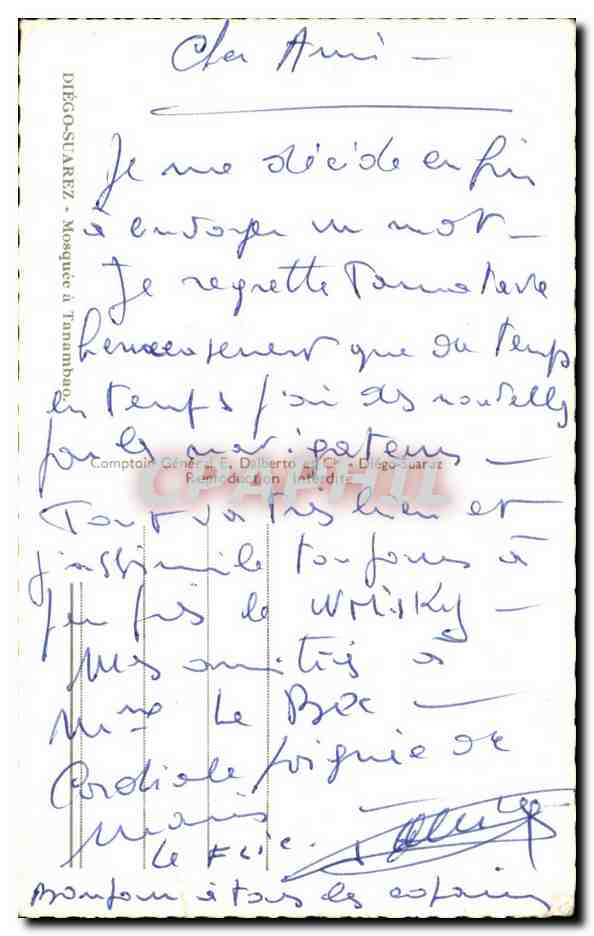 Cher Ami —
Je me décide enfin
à envoyer un mot —
Je regrette Tamatave
heureusement que de temps
en temps j'ai des nouvelles
par les navigateurs —
Tout va très bien et
j'assimile toujours à
peu près le WHISKY —
Mes amitiés à
Mme Le Bec —
Cordiale poignée de
mains
Le Flic.
Bonjour à tous les copains
DIÉGO-SUAREZ - Mosquée à Tanambao.
Comptoir Général E. Dalberto et Cie - Diégo-Suarez
Reproduction Interdite
CPAPHIL